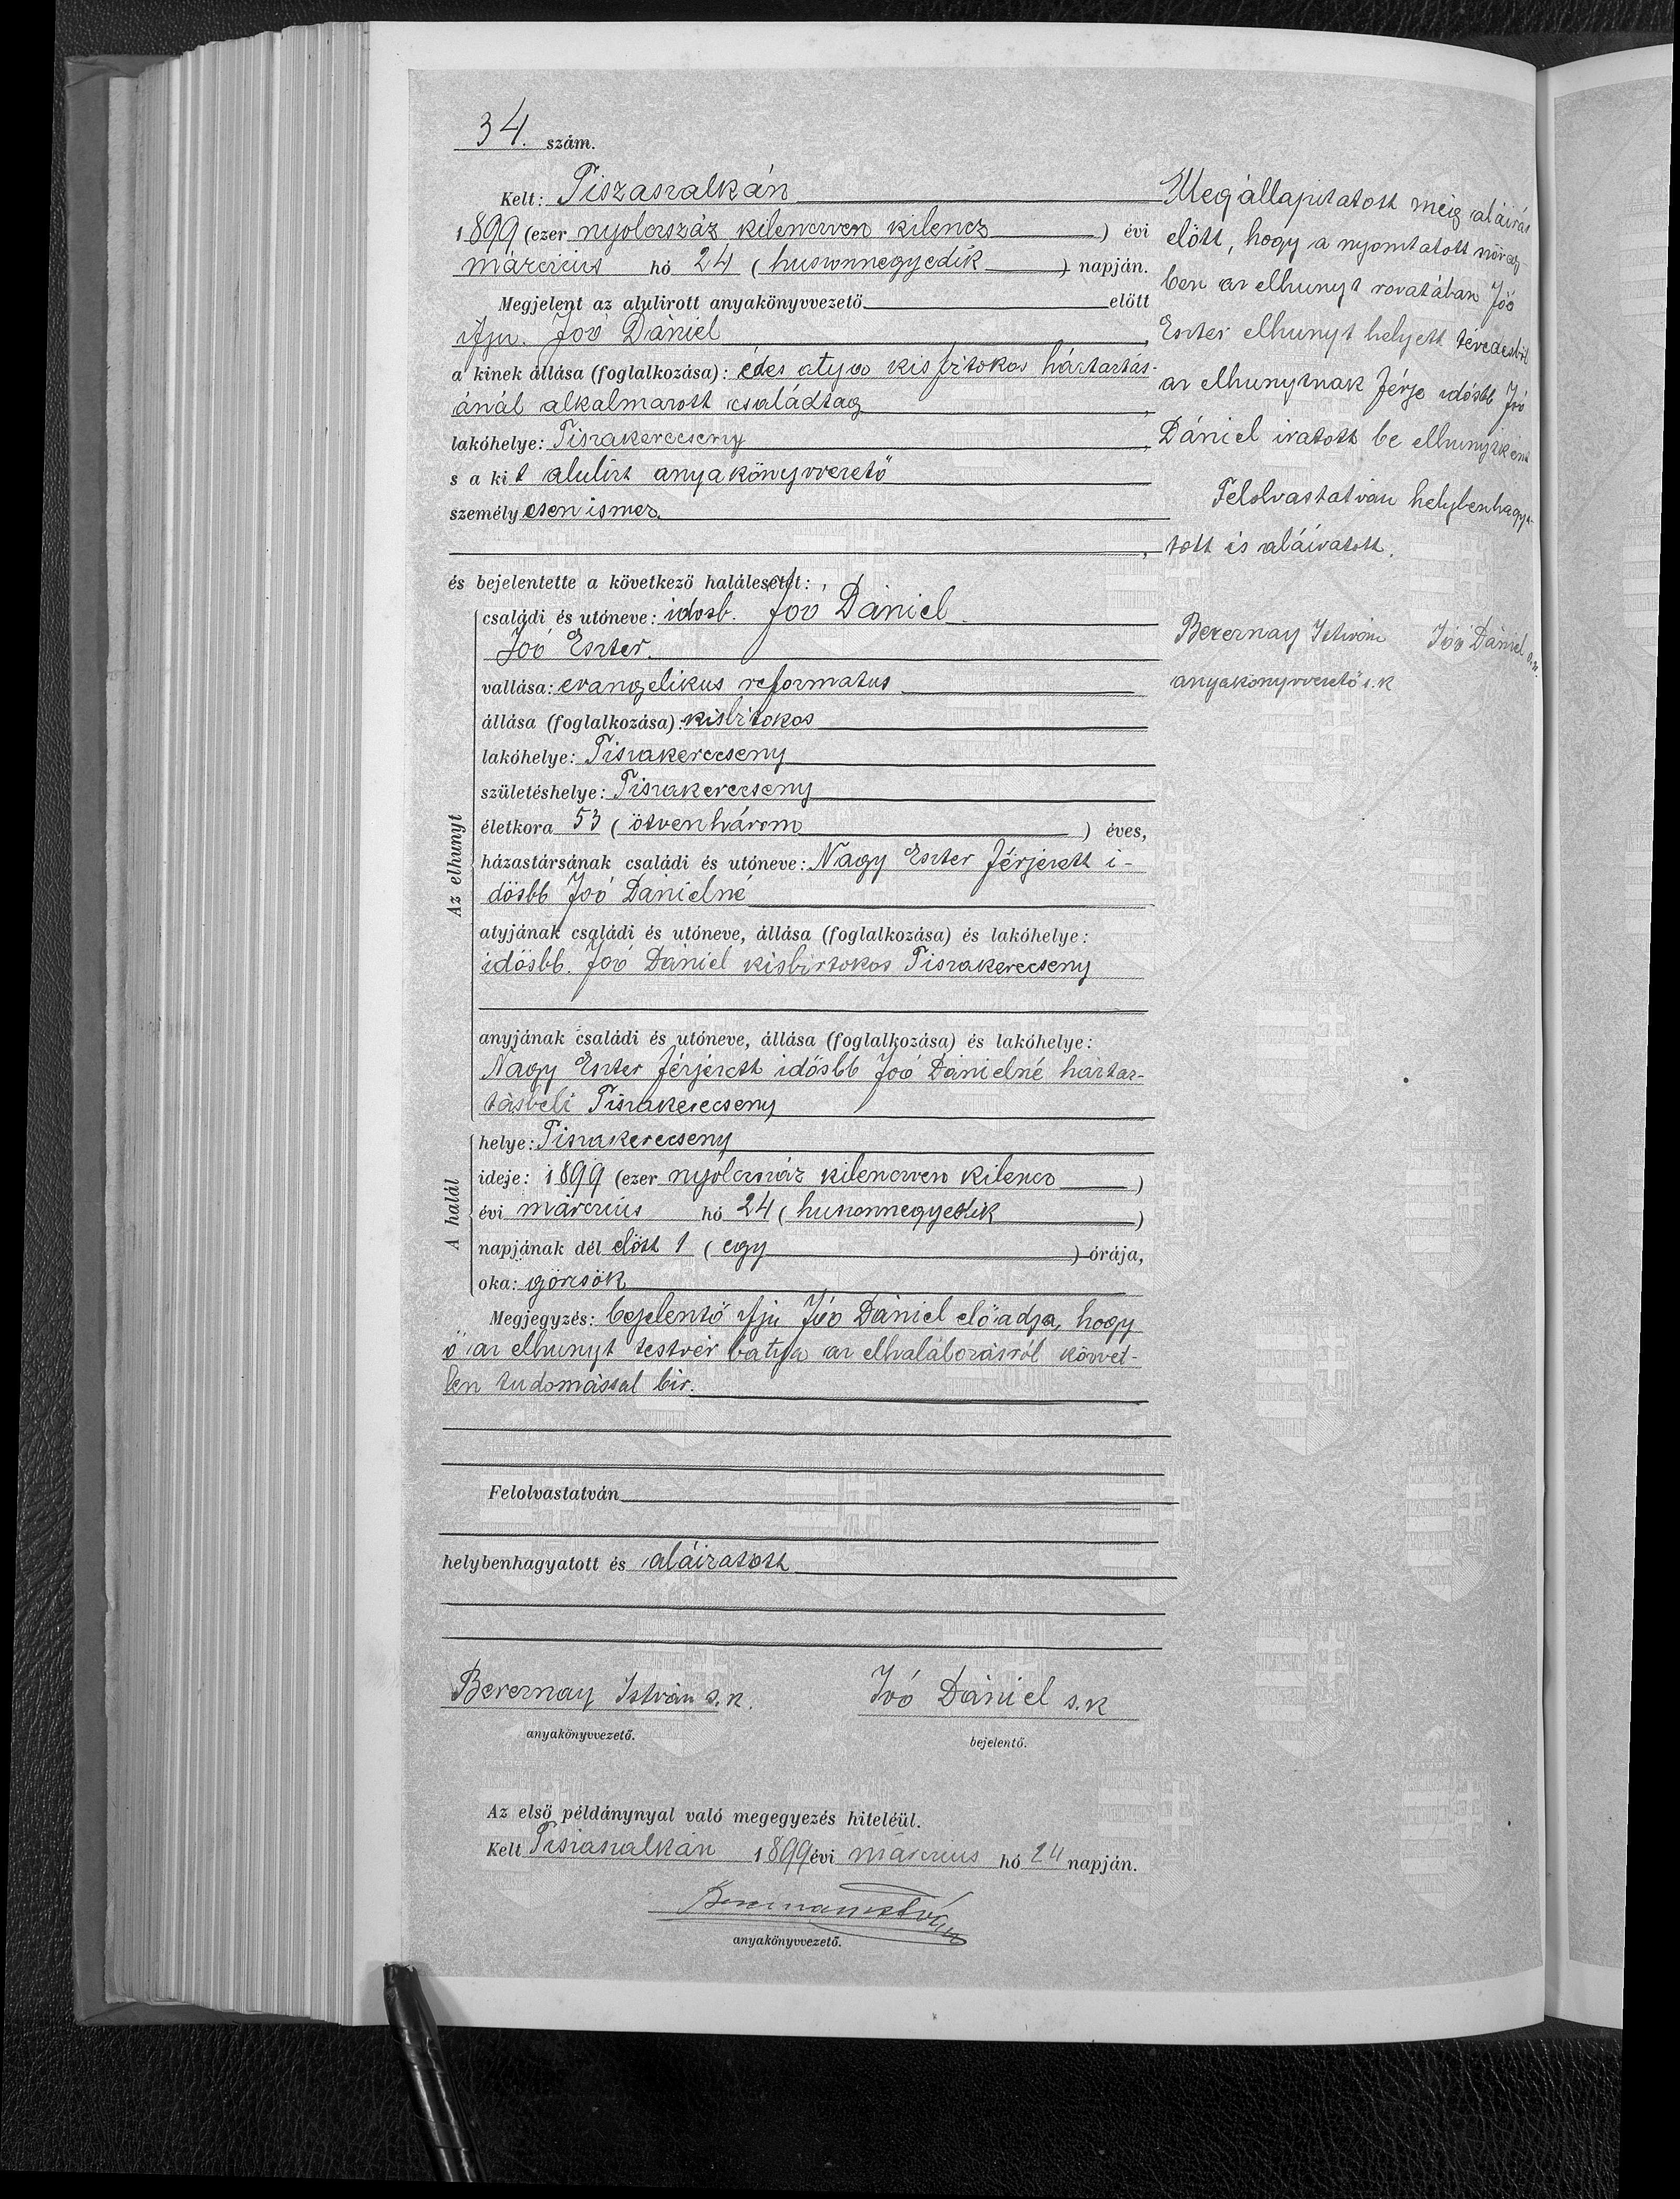 34. szám.
Kelt: Tiszaszalkán
1899 (ezer nyolczszáz kilenczven kilencz) évi
márczius hó 24 (huszonnegyedik) napján.
Megjelent az alulirott anyakönyvvezető előtt
ifju. Joó Dániel,
a kinek állása (foglalkozása): édes atya kisbirtokos háztartás-
ánál alkalmazott családtag,
lakóhelye: Tiszakerecseny,
s a kit alulirt anyakönyvvezető
személyesen ismer.
és bejelentette a következő halálesetet:
Az elhunyt
családi és utóneve: idősb. Joó Dániel
Joó Eszter.
vallása: evangelikus reformatus
állása (foglalkozása): kisbirtokos
lakóhelye: Tiszakerecseny
születéshelye: Tiszakerecseny
életkora 53 (ötvenhárom) éves,
házastársának családi és utóneve: Nagy Eszter férjezett i-
dősbb Joó Dánielné
atyjának családi és utóneve, állása (foglalkozása) és lakóhelye:
idősbb. Joó Dániel kisbirtokos Tiszakerecseny
anyjának családi és utóneve, állása (foglalkozása) és lakóhelye:
Nagy Eszter férjezett idősbb Joó Dánielné háztar-
tásbeli Tiszakerecseny
A halál
helye: Tiszakerecseny
ideje: 1899 (ezer nyolczszáz kilenczven kilencz)
évi márczius hó 24 (huszonnegyedik)
napjának dél előtt 1 (egy) órája,
oka: görcsök
Megjegyzés: bejelentő ifju Joó Dániel előadja, hogy
ő az elhunyt testvér bátyja az elhalálozásról közvet-
len tudomással bir.
Felolvastatván
helybenhagyatott és aláiratott
Bezernay István s.k. Joó Dániel s.k
anyakönyvvezető. bejelentő.
Az első példánynyal való megegyezés hiteléül.
Kelt Tiszaszalkán 1899 évi márczius hó 24 napján.
Bezernay István
anyakönyvvezető.
Megállapitatott még aláirás
előtt, hogy a nyomtatott szöveg-
ben az elhunyt rovatában Joó
Eszter elhunyt helyett tévedésből
az elhunytnak férje idősbb Joó
Dániel iratott be elhunytként
Felolvastatván helybenhagya-
tott és aláiratott.
Bezernay István Joó Dániel s.k.
anyakönyvvezető s.k